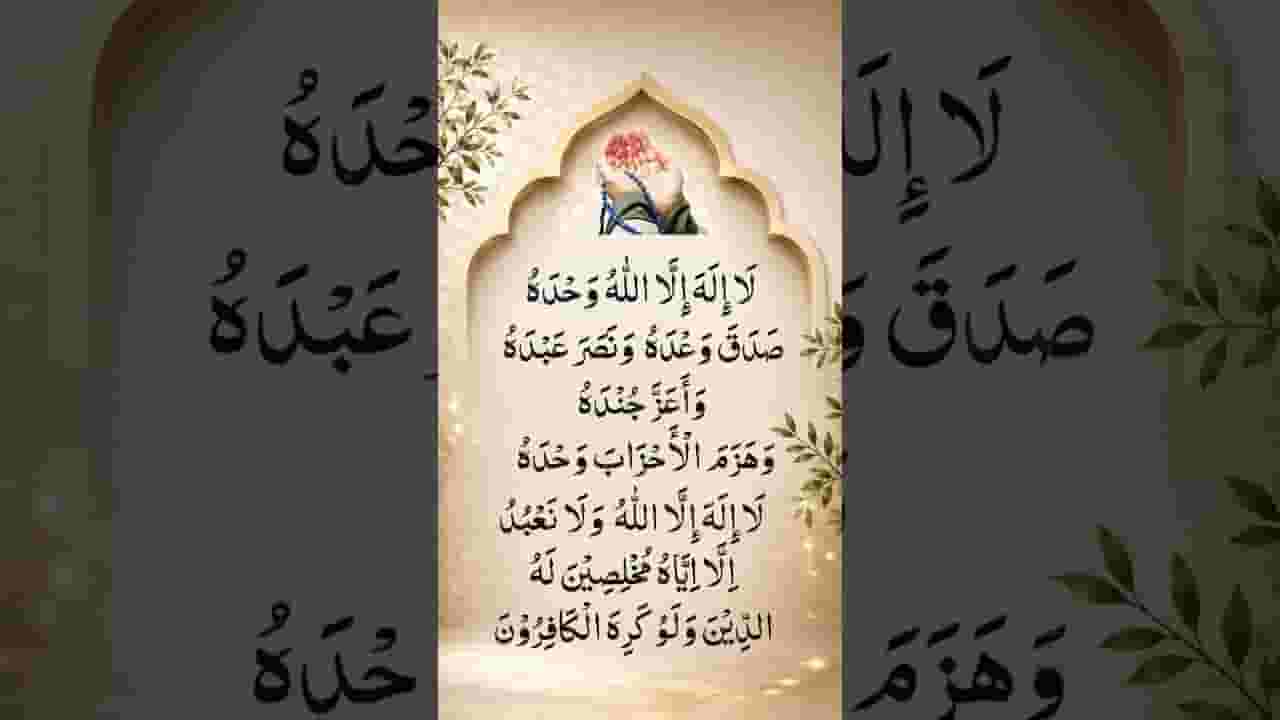 لَا إِلَهَ إِلَّا اللهُ وَحْدَهُ
صَدَقَ وَعْدَهُ وَنَصَرَ عَبْدَهُ
وَأَعَزَّ جُنْدَهُ
وَهَزَمَ الْأَحْزَابَ وَحْدَهُ
لَا إِلَهَ إِلَّا اللهُ وَلَا نَعْبُدُ
اِلَّا اِيَّاهُ مُخْلِصِيْنَ لَهُ
الدِّيْنَ وَلَوْ كَرِهَ الْكَافِرُوْنَ